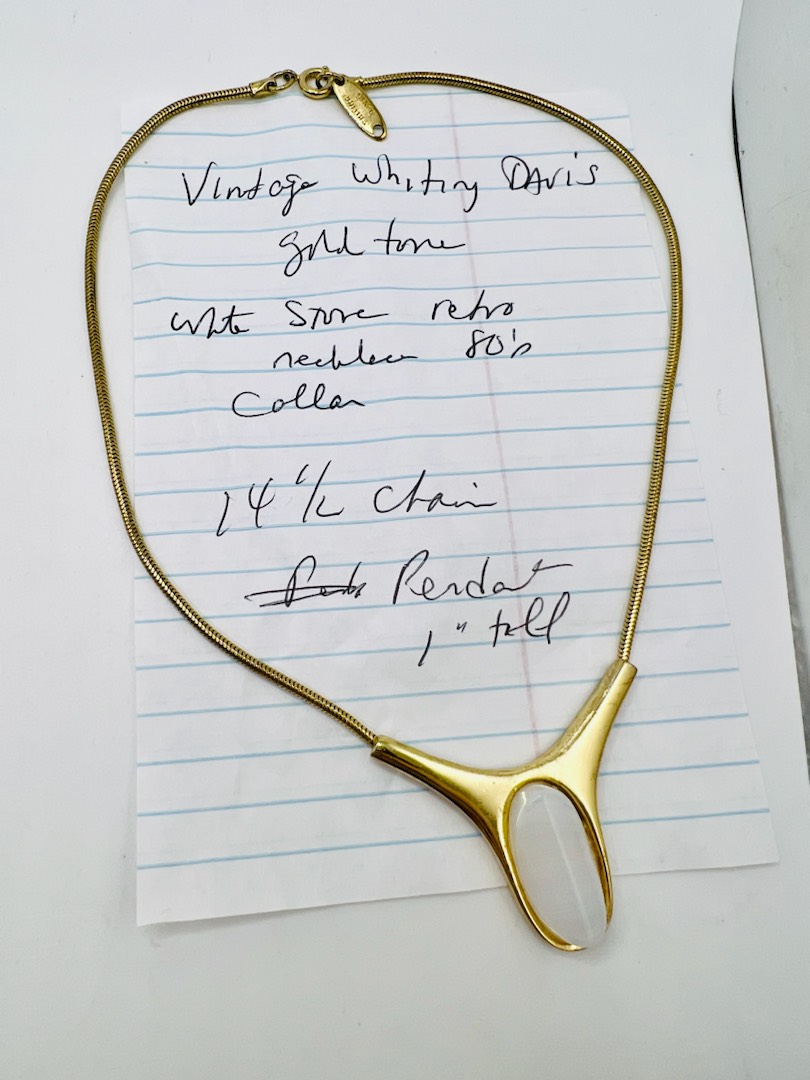 Vintage Whiting Davis
gold tone
White Stone retro
necklace 80's
Collar
14 1/2 Chain
Pendant
1" tall